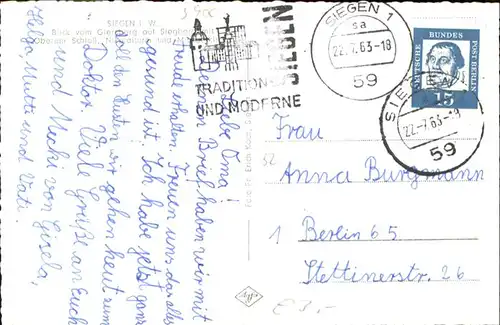 SIEGEN i. W.
Blick vom Giersberg auf Siegberg
Oberes Schloß, Nikolaikirche
SIEGEN
TRADITION
UND MODERNE
SIEGEN 1
sa
22.7.63-18
59
DEUTSCHE BUNDESPOST BERLIN
15
SIEGEN
22.-7.63-18
59
Liebe Oma!
Deinen Brief haben wir mit
Freude erhalten. Freuen uns, daß alles
gesund ist. Ich habe jetzt ganz
doll den Husten wir gehen heut zum
Doktor. Viele Grüße an Euch
und Mecki von Gisela,
Helga Mutti und Vati.
Frau
52
Anna Burgmann
1 Berlin 65
Stettinerstr. 26
Agfa
€ 3,-